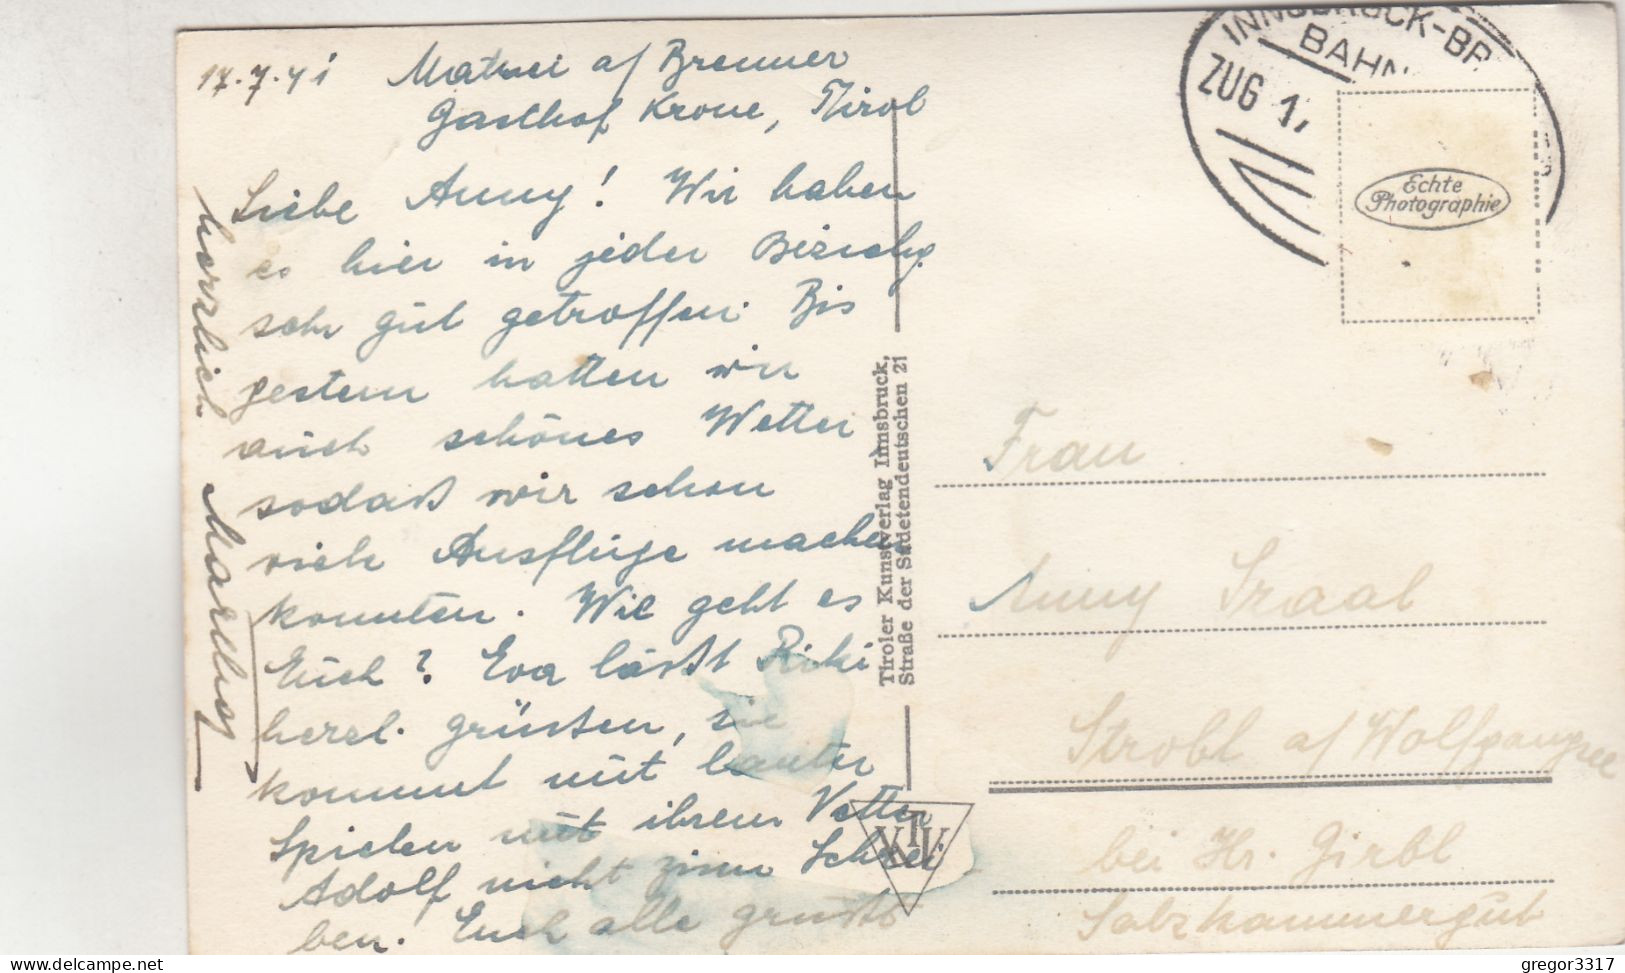 17.7.41 Matrei a/ Brenner
Gasthof Krone, Tirol
Liebe Anny! Wir haben
es hier in jeder Beziehg.
sehr gut getroffen. Bis
gestern hatten wir
auch schönes Wetter
sodaß wir schon
viele Ausflüge machen
konnten. Wie geht es
Euch? Eva läßt Riki
herzl. grüßen, sie
kommt mit lauter
Spielen mit ihrem Vetter
Adolf nicht zum Schrei
ben. Euch alle grüßt
herzlich
INNSBRUCK-BR
BAHN
ZUG 1
Echte
Photographie
Tiroler Kunstverlag Innsbruck,
Straße der Sudetendeutschen 21
KTV
Frau
Anny
Strobl a/ Wolfgangsee
bei Hr. Girbl
Salzkammergut
gregor3317